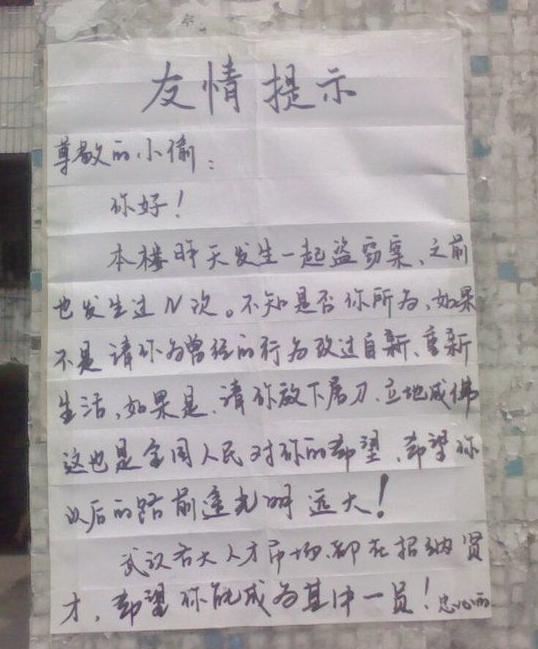 友情提示
尊敬的小偷：
你好！
本楼昨天发生一起盗窃案、之前
也发生过N次。不知是否你所为、如果
不是请你为曾经的行为改过自新、重新
生活，如果是、请你放下屠刀、立地成佛
这也是全国人民对你的希望、希望你
以后的路前途光明远大！
武汉各大人才市场、都在招纳贤
才，希望你能成为其中一员！